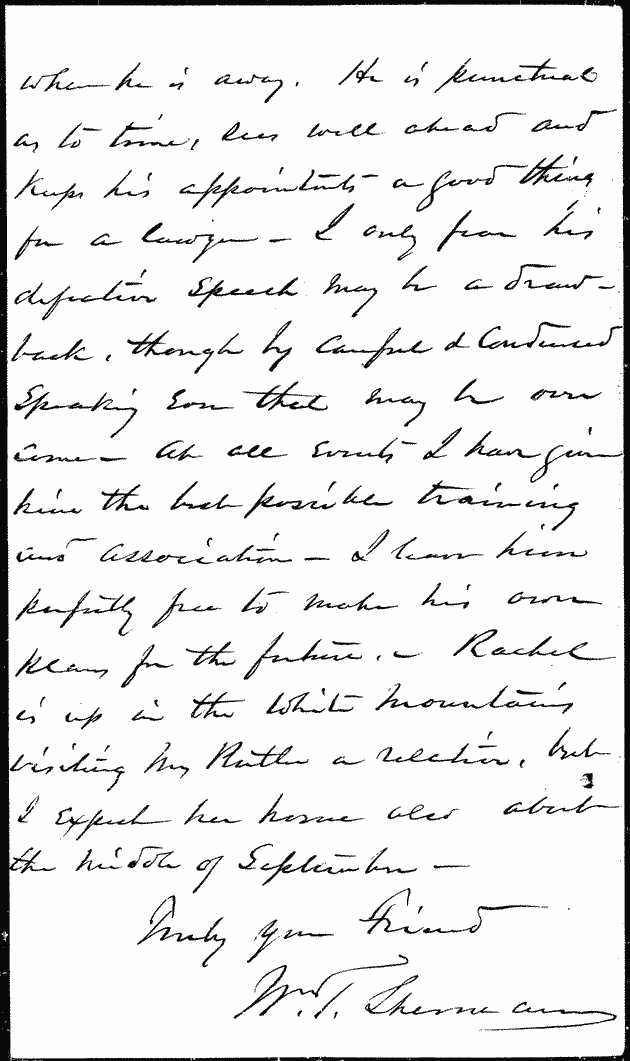 when he is away. He is punctual
as to time, sees well ahead and
Keeps his appointmts a good thing
for a lawyer — I only fear his
defective Speech may be a draw-
back, though by Careful & Condensed
Speaking Even that may be over
come — At all Events I have given
him the best possible training
and association — I leave him
perfectly free to make his own
plans for the future. — Rachel
is up in the White Mountains
visiting a relation, but
I Expect her home also about
the middle of September —
Truly your Friend
W. T. Sherman